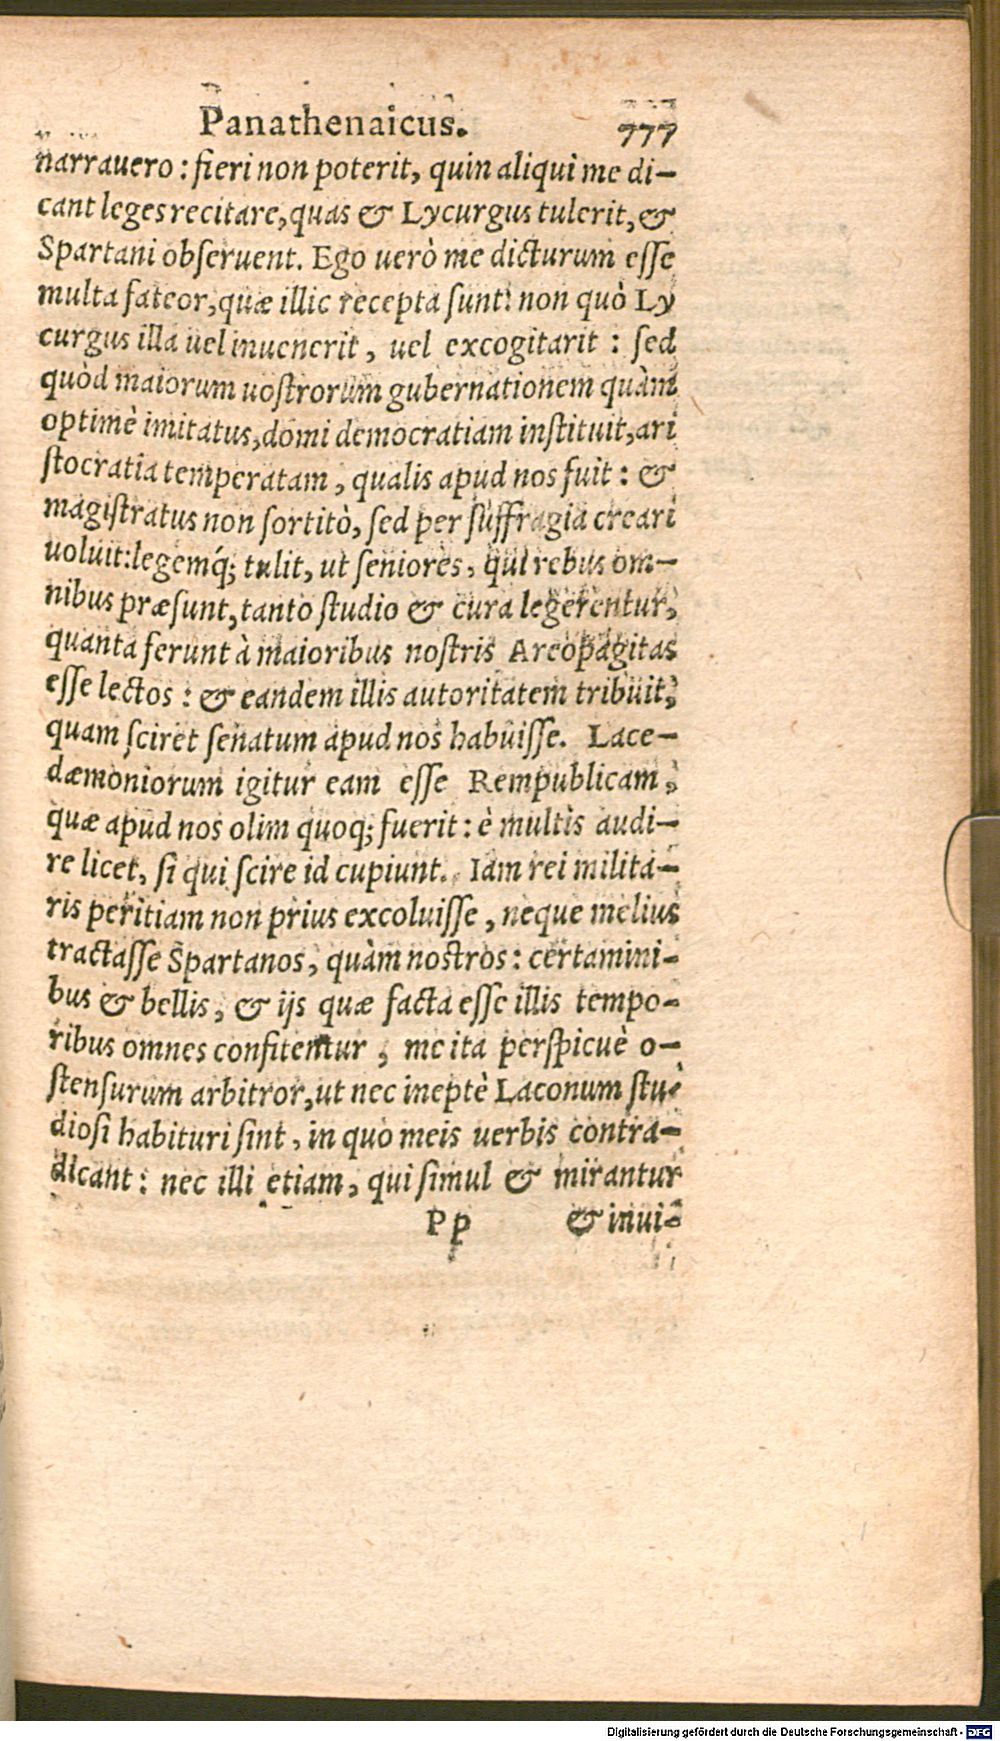 Panathenaicus. 777
narrauero: fieri non poterit, quin aliqui me di-
cant leges recitare, quas & Lycurgus tulerit, &
Spartani obseruent. Ego uerò me dicturum esse
multa fateor, quæ illic recepta sunt: non quò Ly
curgus illa uel inuenerit, uel excogitarit: sed
quòd maiorum uostrorum gubernationem quàm
optimè imitatus, domi democratiam instituit, ari
stocratia temperatam, qualis apud nos fuit: &
magistratus non sortitò, sed per suffragia creari
uoluit: legemq́; tulit, ut seniores, qui rebus om-
nibus præsunt, tanto studio & cura legerentur,
quanta ferunt à maioribus nostris Areopagitas
esse lectos: & eandem illis autoritatem tribuit,
quam sciret senatum apud nos habuisse. Lace-
dæmoniorum igitur eam esse Rempublicam,
quæ apud nos olim quoq; fuerit: è multis audi-
re licet, si qui scire id cupiunt. Iam rei milita-
ris peritiam non prius excoluisse, neque melius
tractasse Spartanos, quàm nostros: certamini-
bus & bellis, & ijs quæ facta esse illis tempo-
ribus omnes confitentur, me ita perspicuè o-
stensurum arbitror, ut nec ineptè Laconum stu-
diosi habituri sint, in quo meis uerbis contra-
dicant: nec illi etiam, qui simul & mirantur
Pp & inui-
Digitalisierung gefördert durch die Deutsche Forschungsgemeinschaft - DFG